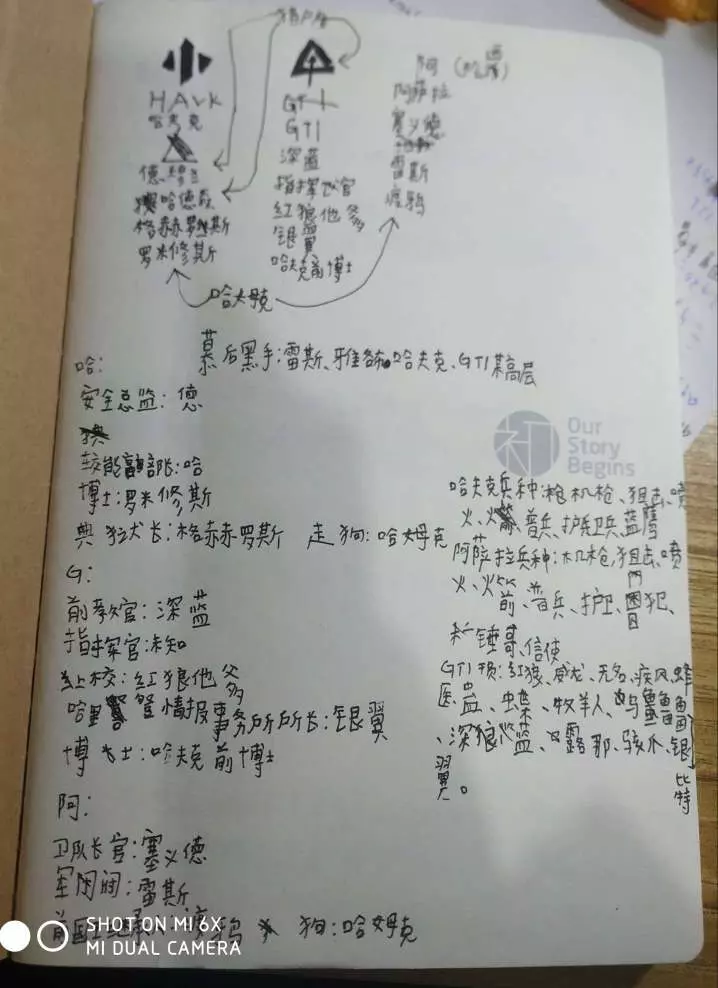 HAVK
哈夫克
德穆兰
哈德森
格赫罗斯
罗米修斯
GTI
GTI
深蓝
指挥官
红狼他爹
银翼
哈夫克前博士
阿(哈)
阿萨拉
赛义德
雷斯
渡鸦
哈姆克
幕后黑手:雷斯、雅各布、哈夫克、GTI某高层
哈:
安全总监:德
部长:哈
博士:罗米修斯
典狱长:格赫罗斯 走狗:哈姆克
G:
前教官:深蓝
指挥官:未知
上校:红狼他爹
哈里发情报事务所所长:银翼
博士:哈夫克前博士
阿:
卫队长官:赛义德
军阀:雷斯
前国王继承人:渡鸦 狗:哈姆克
Our
Story
Begins
哈夫克兵种:机枪、狙击、喷
火、火箭、普兵、护卫兵
阿萨拉兵种:机枪、狙击、喷
火、火箭、普兵、护卫、囚犯、
锤哥、信使
GTI:红狼、威龙、无名、疾风、蜂
医、蛊、牧羊人、乌鲁鲁
、深蓝、露娜、骇爪、银
翼。
比特
SHOT ON MI 6X
MI DUAL CAMERA